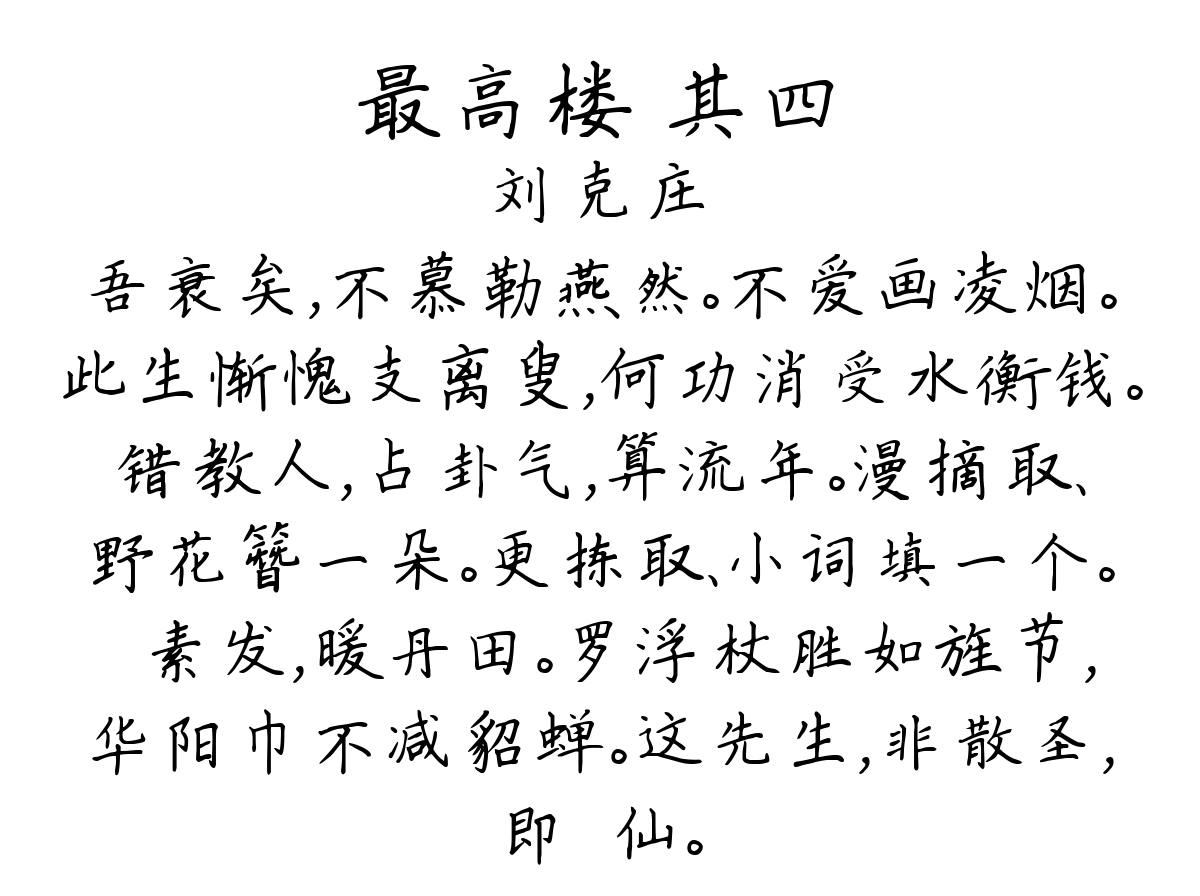 最高楼 其四
刘克庄
吾衰矣,不慕勒燕然。不爱画凌烟。
此生惭愧支离叟,何功消受水衡钱。
错教人,占卦气,算流年。漫摘取、
野花簪一朵。更拣取、小词填一个。
素发,暖丹田。罗浮杖胜如旌节,
华阳巾不减貂蝉。这先生,非散圣,
即 仙。